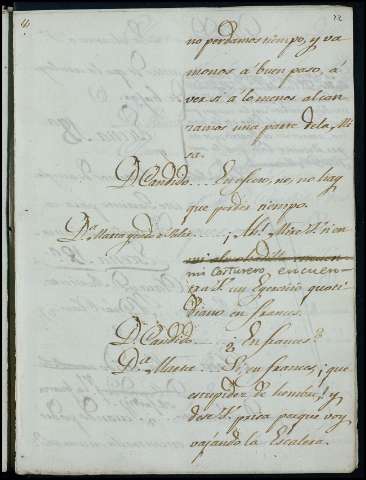 no perdamos tiempo, y va
monos á buen paso, á
ver si á lo menos alcan
zamos una parte dela Mi
sa.
Dn. Candido... En efecto, no, no hay
que perder tiempo.
Da. Marta ¡Ah! Mire Vd. en
mi Costurero encuen-
tra Vd. un Exercicio quoti
diano en frances.
Dn. Candido... ¿En frances?
Da. Marta... Si, en frances, ¡que
estupidez de hombre! y
dese Vd. prisa porque voy
vajando la Escalera.